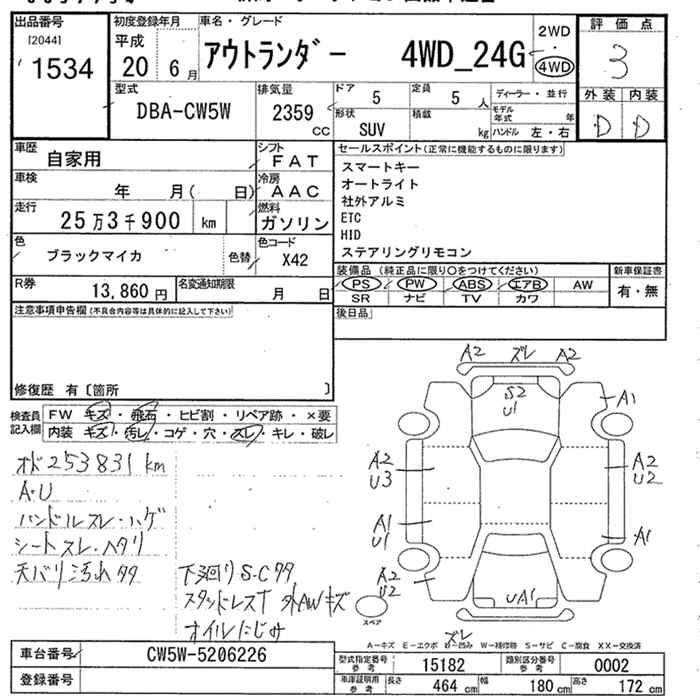 出品番号 初度登録年月 車名・グレード 評価点
[2044] 平成 アウトランダー 4WD_24G 2WD
1534 20 6月 ・ 4WD 3
型式 排気量 ドア 5 定員 5人 ディーラー・並行 外装 内装
DBA-CW5W 2359 cc 形状 SUV 積載 kg モデル年式 年 D D
ハンドル 左・右
車歴 自家用 シフト FAT セールスポイント(正常に機能するものに限ります)
車検 年 月( 日) 冷房 AAC スマートキー
オートライト
走行 25万3千900 km 燃料 ガソリン 社外アルミ
ETC
HID
色 ブラックマイカ 色替 色コード X42 ステアリングリモコン
R券 13,860円 名変通知期限 月 日 装備品(純正品に限り○をつけてください) 新車保証書
PS PW ABS エアB AW 有・無
SR ナビ TV カワ
注意事項申告欄(不具合内容等は具体的に記入して下さい) 後日品
修復歴 有〔箇所 〕
検査員記入欄 FW キズ・飛石・ヒビ割・リペア跡・×要
内装 キズ・汚レ・コゲ・穴・スレ・キレ・破レ
A2 ズレ A2
S2
U1
A1
A2
U3
A2
U2
A1
U1
A1
A2
U2
UA1
スペア
オド253831km
A・U
ハンドルスレ・ハゲ
シートスレ・ヘタリ
天バリ汚れ
下廻りS・C
スタッドレスT 外AWキズ
オイルにじみ
ズレ
A-キズ E-エクボ U-凹み W-補修跡 S-サビ C-腐食 XX-交換済
車台番号 CW5W-5206226 型式指定番号参考 15182 類別区分番号参考 0002
登録番号 車庫証明用参考 長さ 464 cm 幅 180 cm 高さ 172 cm